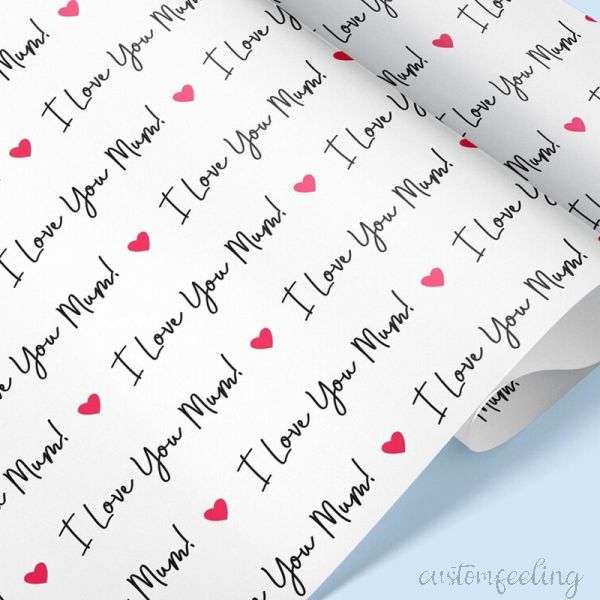 Mum!
I Love You Mum!
I Love You Mum!
I Love
You Mum!
I Love You Mum!
Mum!
I Love You Mum!
I Love
I Love You Mum!
I Love You Mum!
Mum!
I Love You Mum!
I Love
Love You Mum!
I Love You Mum!
Mum!
customfeeling